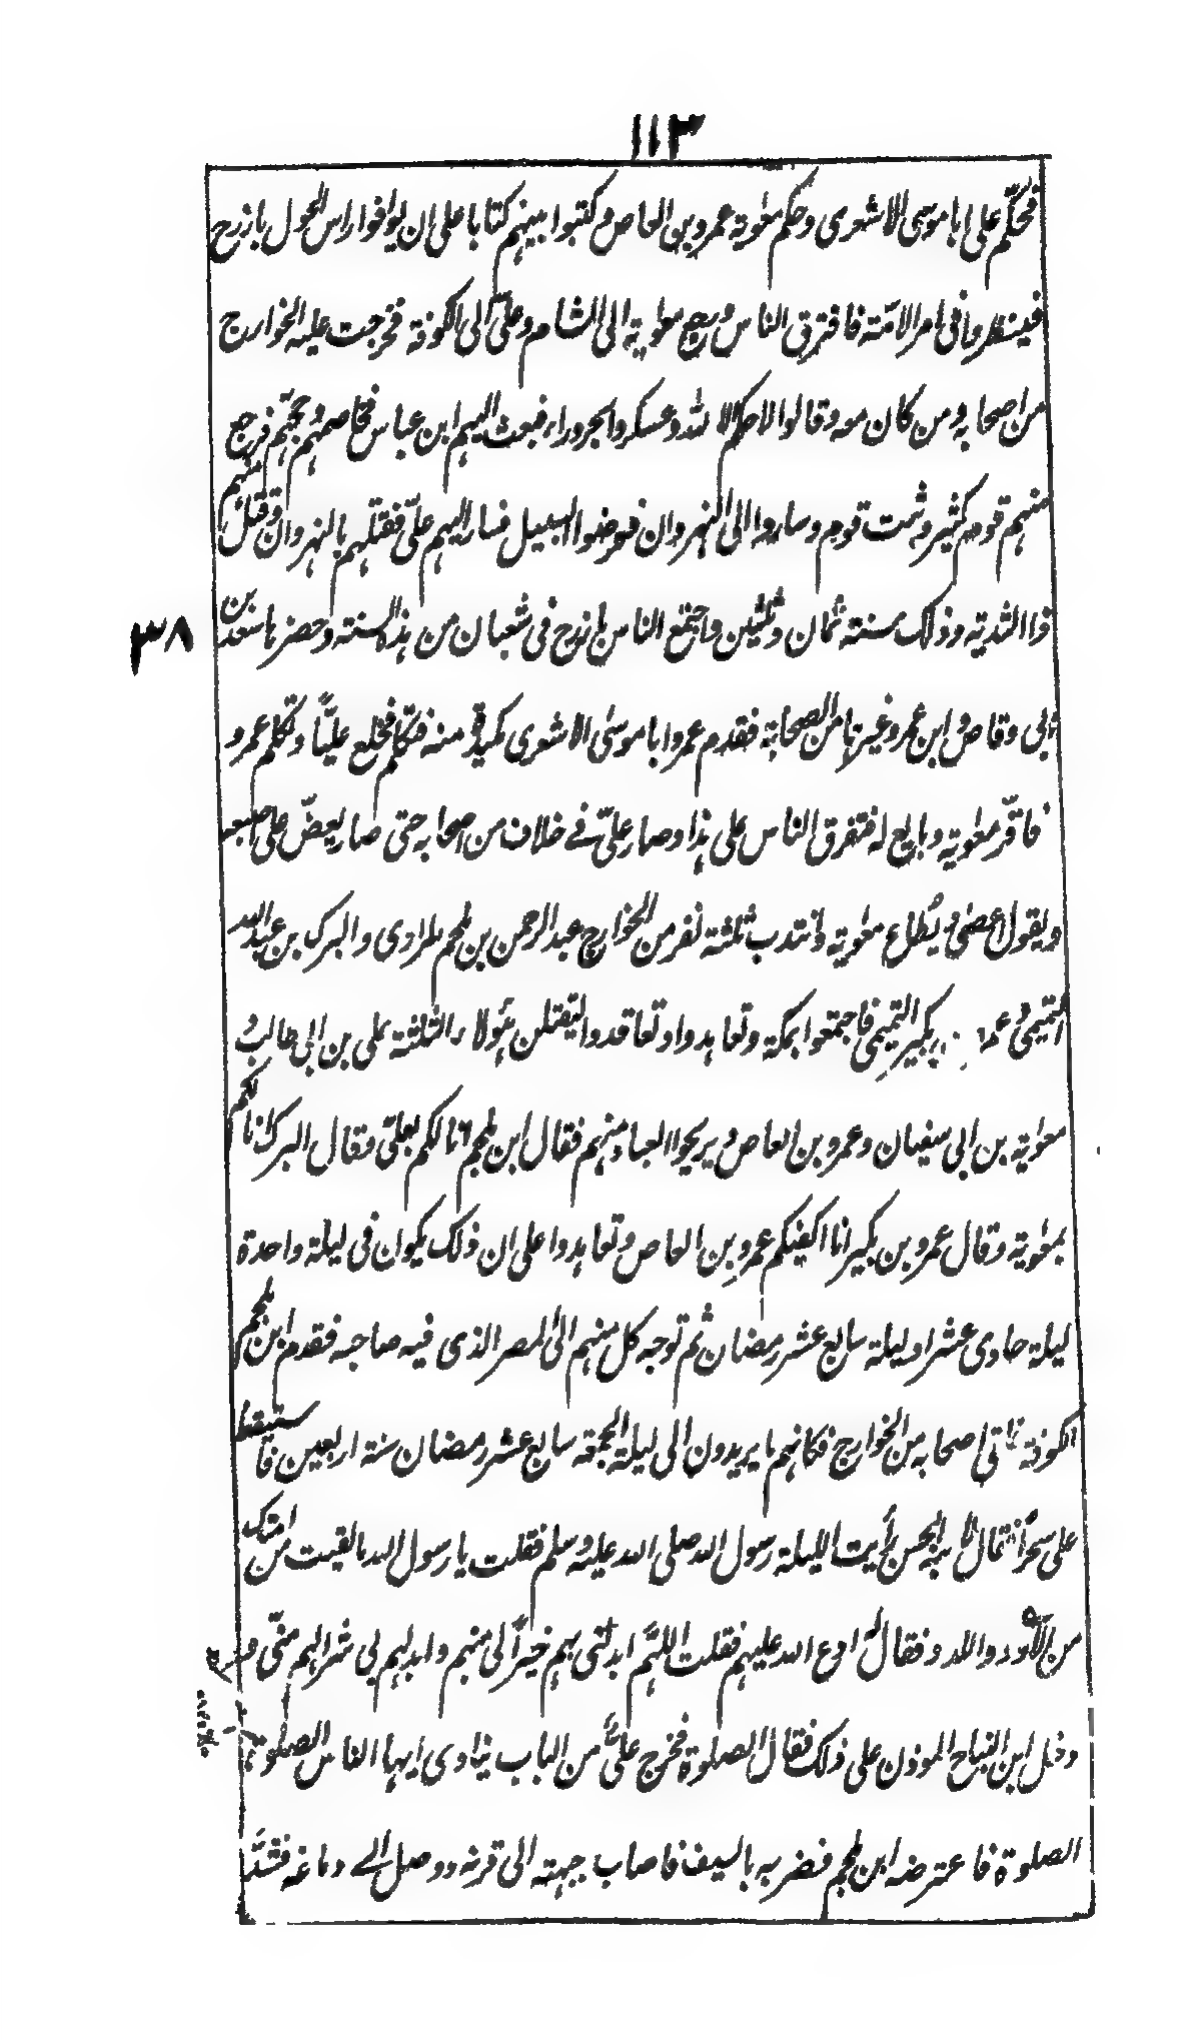 ١١٣
فحكّم على ابا موسى الاشعرى وحكم معٰوية عمرو بن العاص وكتبوا بينهم كتابا على ان يوافوا راس الحول باذرح
فينظروا فى امر الامّة فافترق الناس ورجع معٰوية الى الشام وعلىّ الى الكوفة فخرجت عليه الخوارج
من اصحابه ومن كان معه وقالوا لا حكم الا لله وعسكروا بحروراء فبعث اليهم ابن عباس فخاصمهم وحجّهم فرجع
منهم قوم كثير وثبت قوم وساروا الى النهروان فعرضوا السبيل فسار اليهم علىّ فقتلهم بالنهروان وقتل منهم
ذا الثدية وذلك سنة ثمان وثلثين واجتمع الناس باذرح فى شعبان من هذه السنة وحضرها سعد بن
٣٨
ابى وقاص وابن عمر وغيرها من الصحابة فقدم عمرو ابا موسىٰ الاشعرى مكيدة منه فتكلم فخلع عليّاً وتكلم عمرو
فاقرّ معٰوية وبايع له فتفرق الناس على هذا وصار علىّ فى خلاف من اصحابه حتى صار يعضّ على اصبعه
ويقول اعصىٰ ويُطاع معٰوية وانتدب ثلثة نفر من الخوارج عبد الرحمن بن ملجم المرادى والبرك بن عبد الله
التميمى و بكير التميمى فاجتمعوا بمكة وتعاهدوا وتعاقدوا ليقتلن هؤلاء الثلثة على بن ابى طالب و
معٰوية بن ابى سفيان وعمرو بن العاص ويريحوا العباد منهم فقال ابن ملجم انا لكم بعلىّ وقال البرك انا لكم
بمعٰوية وقال عمرو بن بكير انا اكفيكم عمرو بن العاص وتعاهدوا على ان ذلك يكون فى ليلة واحدة
ليلة حادى عشر او ليلة سابع عشر رمضان ثم توجه كل منهم الى المصر الذى فيه صاحبه فقدم ابن ملجم
الكوفة فلقى اصحابه من الخوارج فكاتهم ما يريدون الى ليلة الجمعة سابع عشر رمضان سنة اربعين فاستيقظ
على سحراً فقال لابنه الحسن رأيت الليلة رسول الله صلى الله عليه وسلم فقلت يا رسول الله ما لقيت من امتك
من الاود واللدد فقال لى ادع الله عليهم فقلت اللهم ابدلنى بهم خيراً لى منهم وابدلهم بى شراً لهم منّى
ودخل ابن النباح الموذن على ذلك فقال الصلوة فخرج علىّ من الباب ينادى ايها الناس الصلوة
الصلوة فاعترضه ابن ملجم فضربه بالسيف فاصاب جبهته الى قرنه ووصل الى دماغه فشدّ